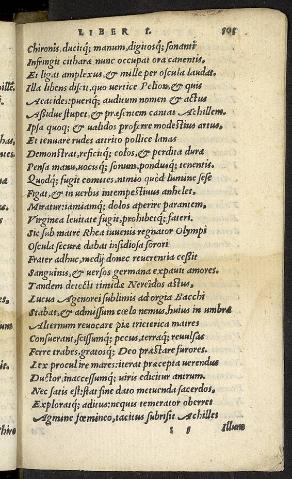 LIBER I.
Chironis, ducitq; manum, digitosq; sonanti
Infringit citharæ nunc occupat ora canentis,
Et ligat amplexus, & mille per oscula laudat.
Illa libens discit, quo vertice Pelion, & quis
Aeacides: pueriq; auditum nomen & actus
Assidue stupet, & præsentem cantat Achillem.
Ipsa quoq; & ualidos proferre modestius artus,
Et tenuare rudes attrito pollice lanas
Demonstrat, reficitq; colos, & perdita dura
Pensa manu, uocisq; sonum, pondusq; tenentis.
Quodq; fugit comites, nimio quòd lumine sese
Figat, & in uerbis intempestiuus anhelet,
Miratur: iamiamq; dolos aperire parantem,
Virginea leuitate fugit, prohibetq; fateri.
Sic sub matre Rhea iuuenis regnator Olympi
Oscula securæ dabat insidiosa sorori
Frater adhuc, medij donec reuerentia cessit
Sanguinis, & uersos germana expauit amores.
Tandem detecti timidæ Nereidos astus,
Lucus Agenorei sublimis ad orgia Bacchi
Stabat, & admissum cœlo nemus, huius in umbra
Alternum reuocare piæ trieterica matres
Consuerant, scissumq; pecus, terraq; reuulsas
Ferre trabes, gratosq; Deo præstare furores.
Lex procul ire mares: iterat præcepta uerendus
Ductor, inaccessumq; uiris edicitur antrum.
Nec satis est: stat fine dato metuenda sacerdos,
Exploratq; aditus: ne quis temerator oberret
Agmine fœmineo, tacitus subrisit Achilles
Illum